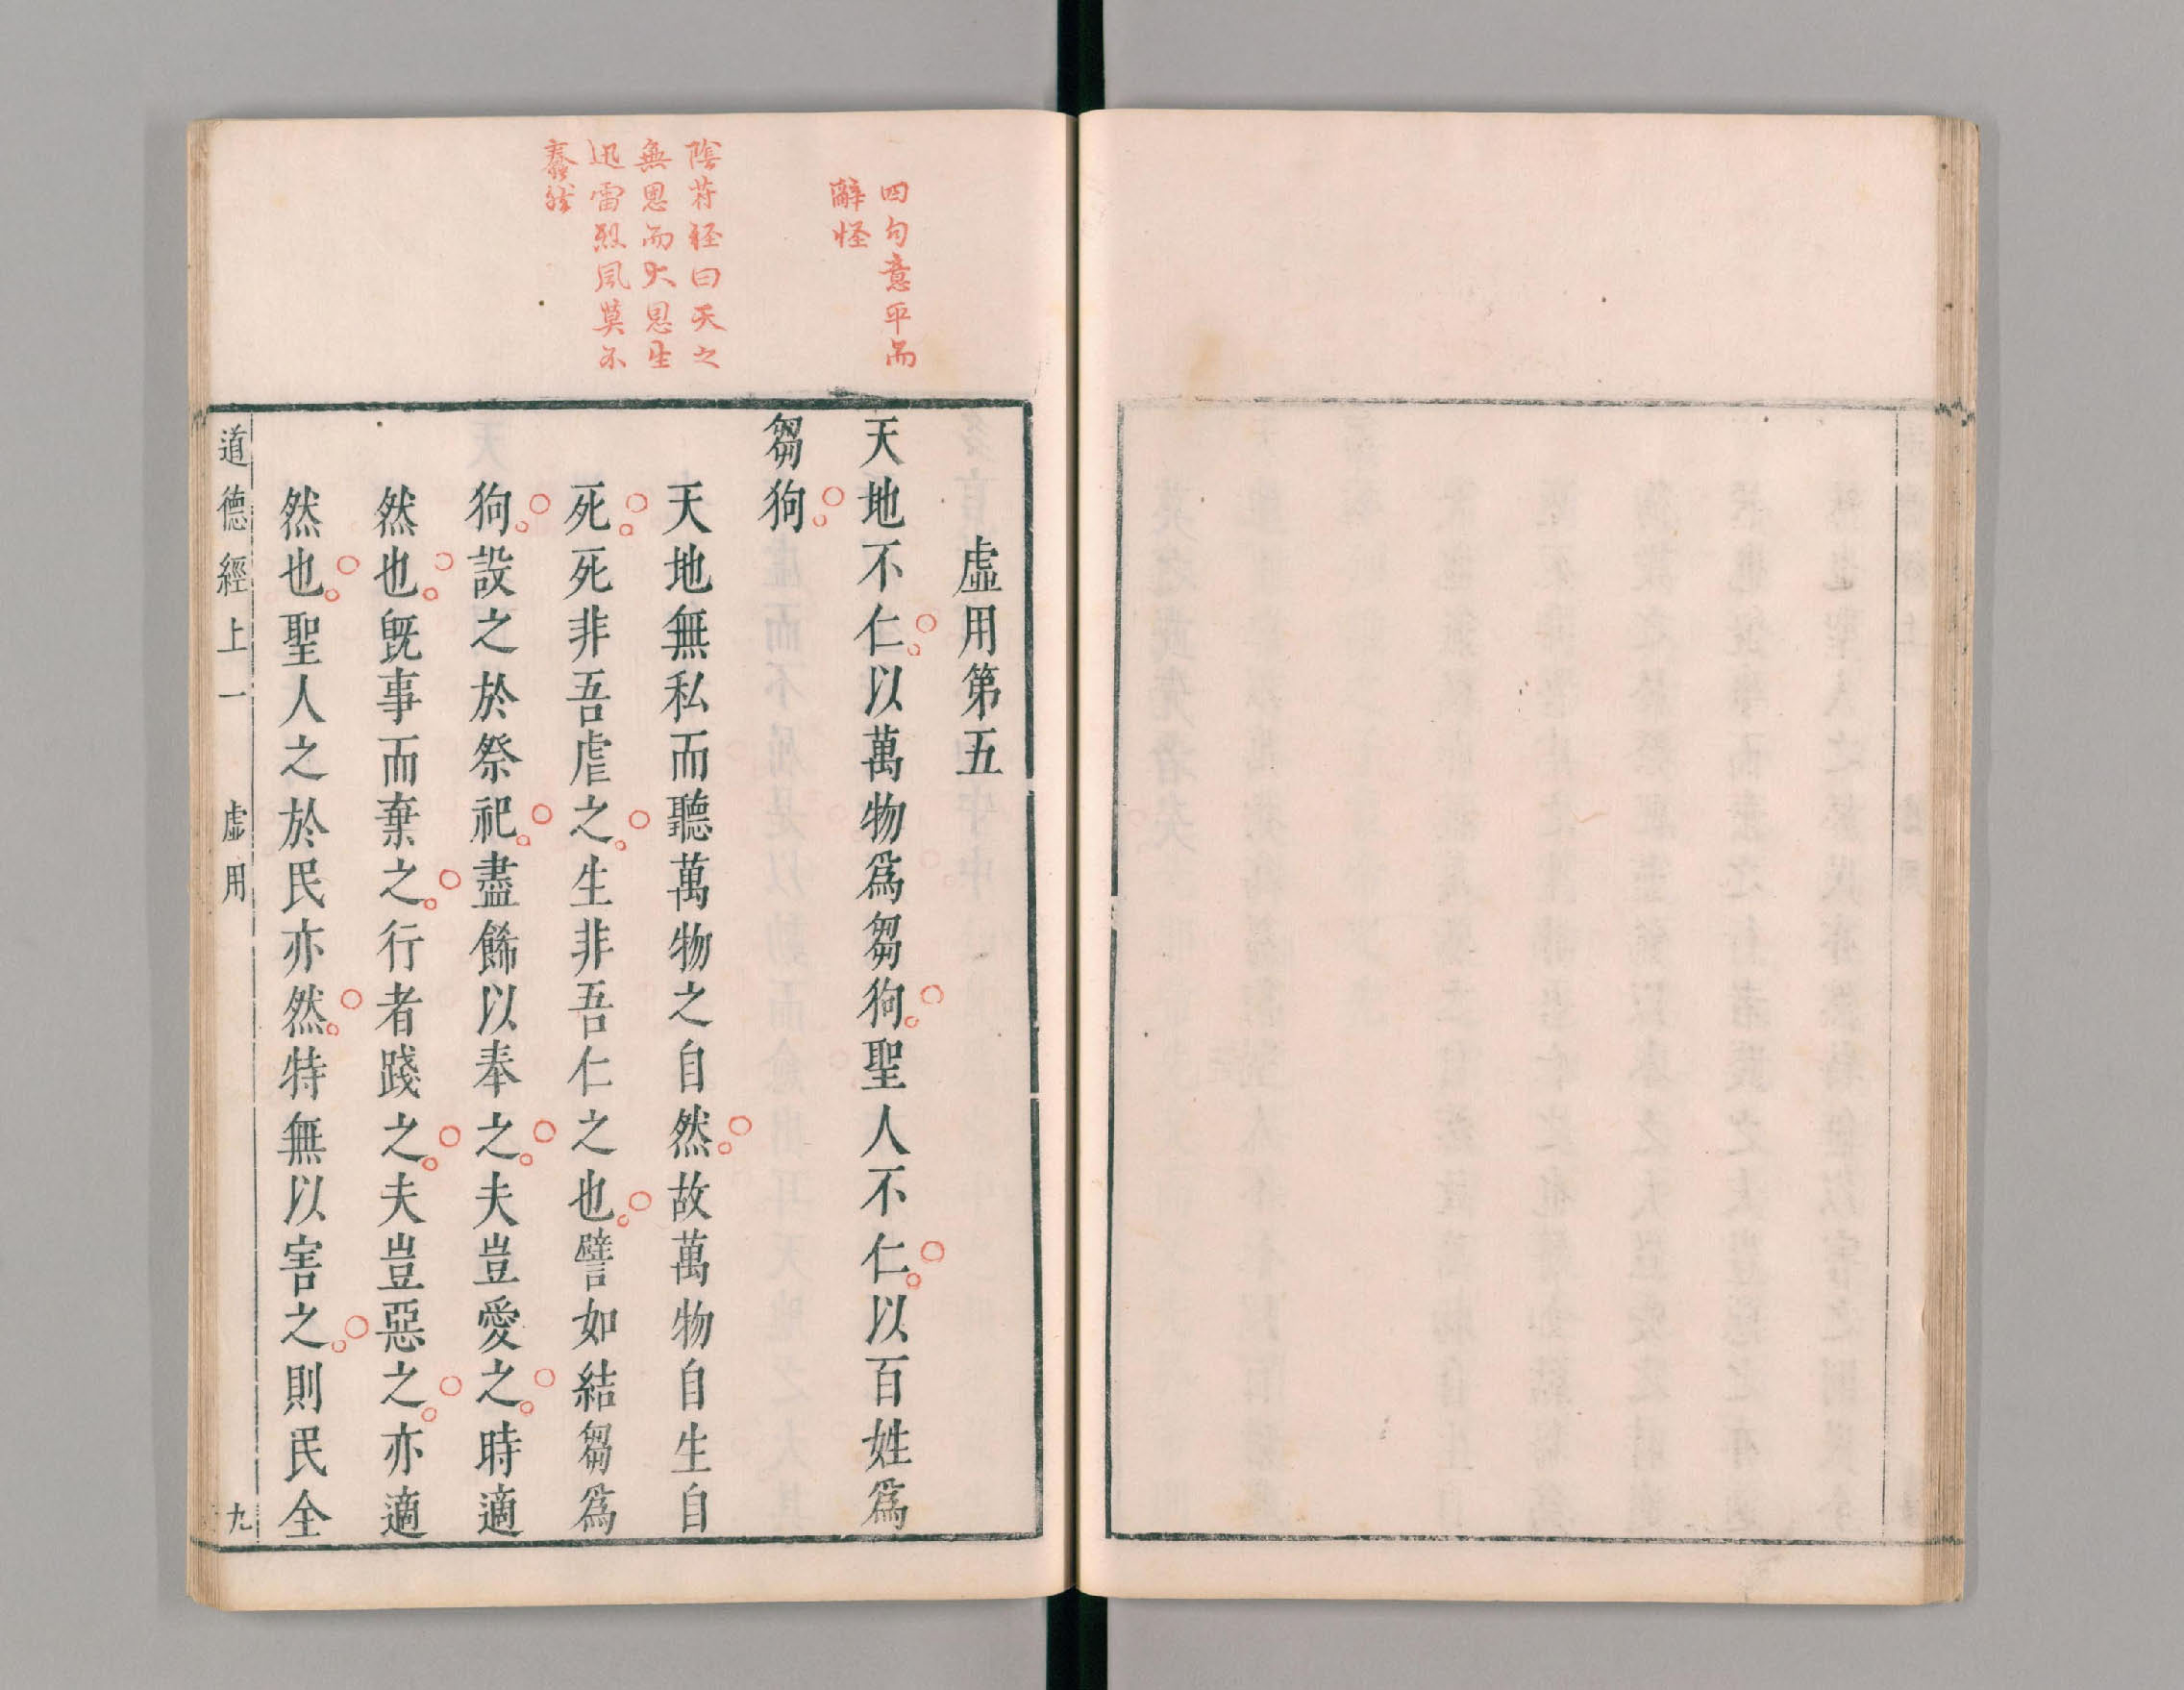 四句意平而
辭怪
陰符經曰天之
無恩而大恩生
迅雷烈風莫不
蠢然
虛用第五
天地不仁以萬物爲芻狗聖人不仁以百姓爲
芻狗
天地無私而聽萬物之自然故萬物自生自
死死非吾虐之生非吾仁之也譬如結芻爲
狗設之於祭祀盡餙以奉之夫豈愛之時適
然也旣事而棄之行者踐之夫豈惡之亦適
然也聖人之於民亦然特無以害之則民全
道德經上一 虛用 九